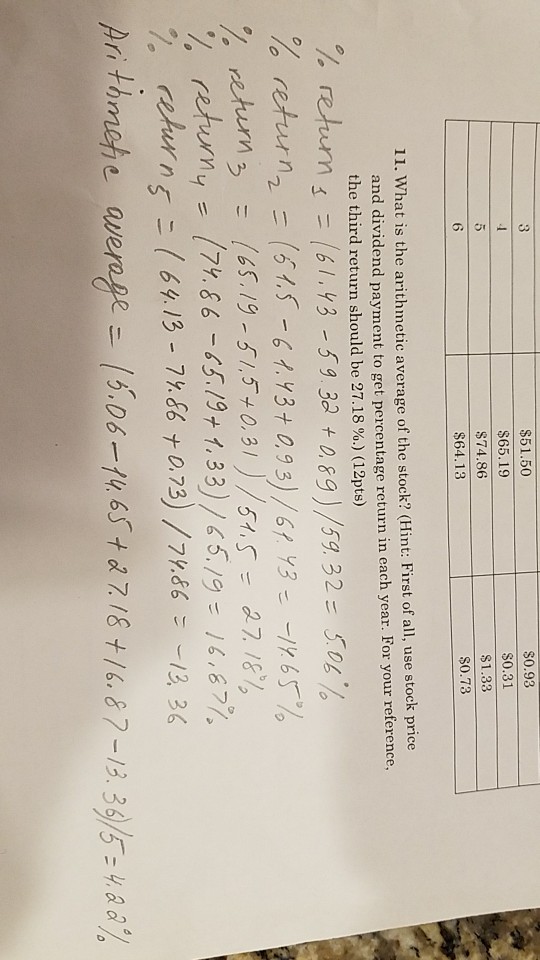 3 $51.50 $0.93
4 $65.19 $0.31
5 $74.86 $1.33
6 $64.13 $0.73
11. What is the arithmetic average of the stock? (Hint: First of all, use stock price
and dividend payment to get percentage return in each year. For your reference,
the third return should be 27.18 %.) (12pts)
% return 1 = (61.43 - 59.32 + 0.89) / 59.32 = 5.06%
% return 2 = (51.5 - 61.43 + 0.93) / 61.43 = -14.65%
% return 3 = (65.19 - 51.5 + 0.31) / 51.5 = 27.18%
% return 4 = (74.86 - 65.19 + 1.33) / 65.19 = 16.87%
% return 5 = (64.13 - 74.86 + 0.73) / 74.86 = -13.36
Arithmetic average = (5.06 - 14.65 + 27.18 + 16.87 - 13.36)/5 = 4.22%